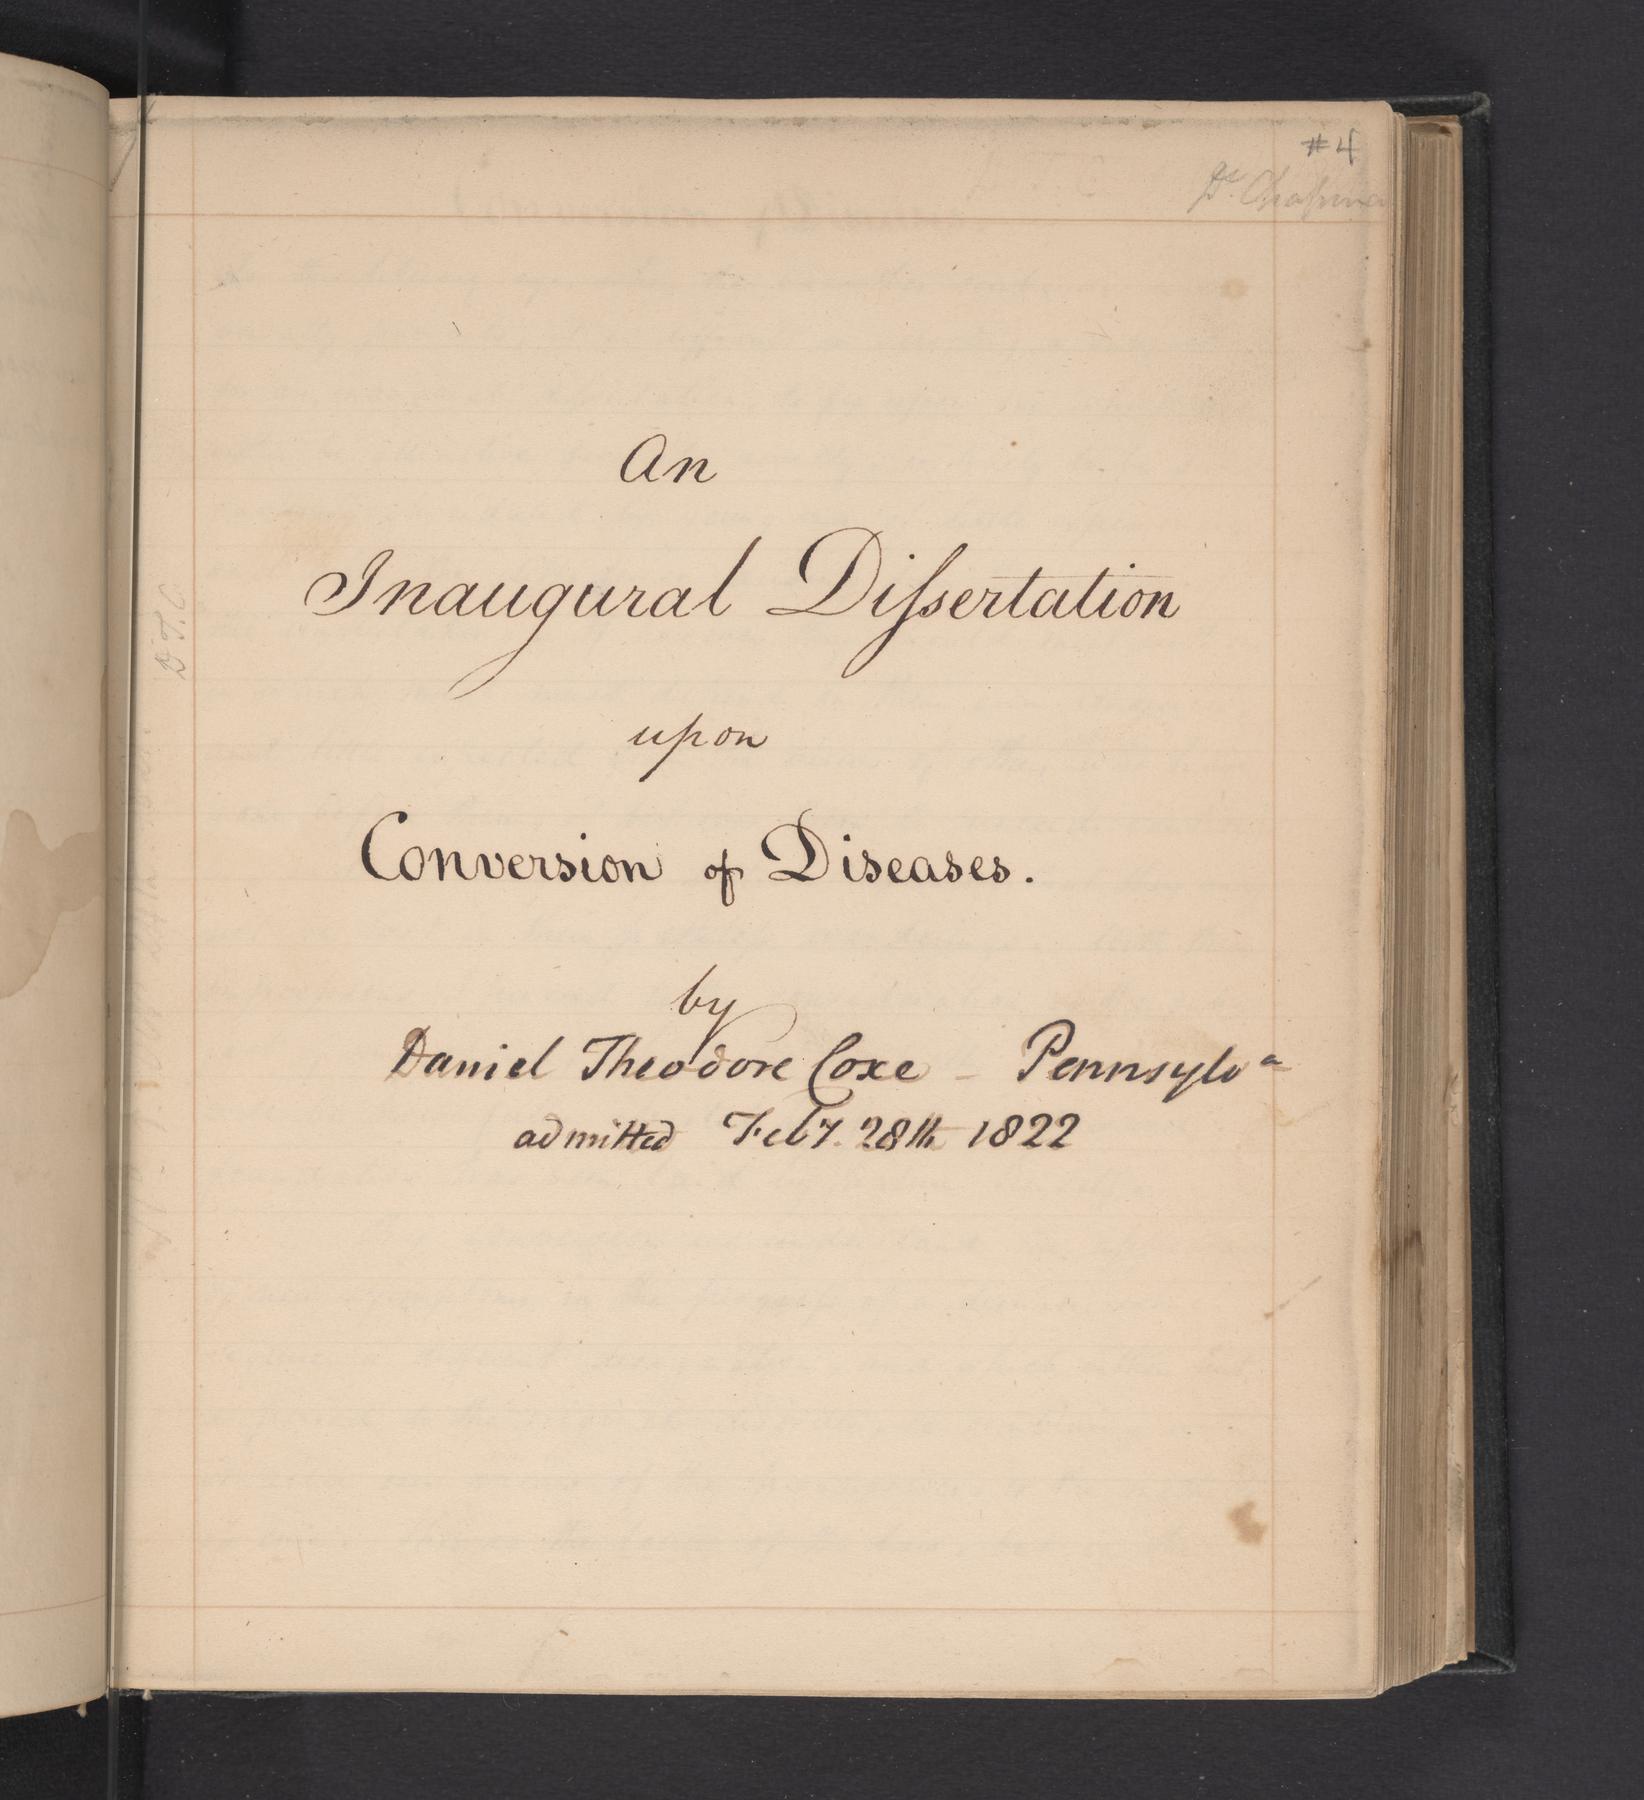 #4
Dr. Chapman
An
Inaugural Dissertation
upon
Conversion of Diseases.
by
Daniel Theodore Coxe – Pennsylva
admitted Feby. 28th 1822
D. T. C.